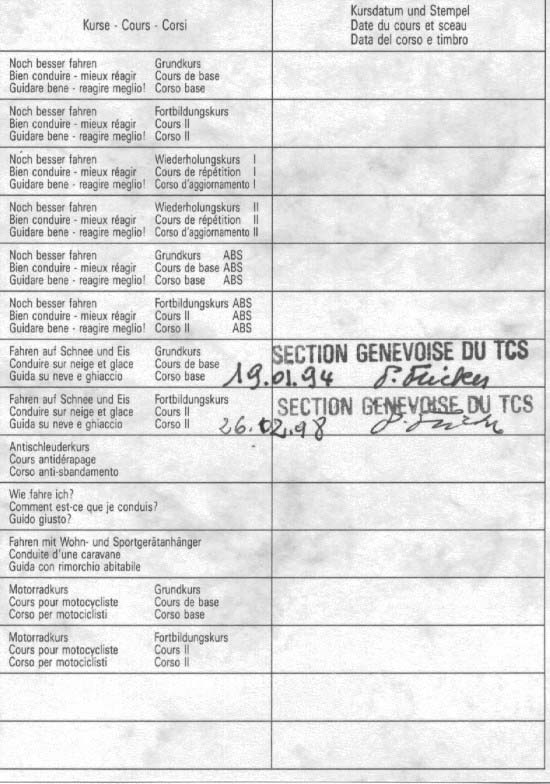 Kurse - Cours - Corsi
Kursdatum und Stempel
Date du cours et sceau
Data del corso e timbro
Noch besser fahren Grundkurs
Bien conduire - mieux réagir Cours de base
Guidare bene - reagire meglio! Corso base
Noch besser fahren Fortbildungskurs
Bien conduire - mieux réagir Cours II
Guidare bene - reagire meglio! Corso II
Noch besser fahren Wiederholungskurs I
Bien conduire - mieux réagir Cours de répétition I
Guidare bene - reagire meglio! Corso d'aggiornamento I
Noch besser fahren Wiederholungskurs II
Bien conduire - mieux réagir Cours de répétition II
Guidare bene - reagire meglio! Corso d'aggiornamento II
Noch besser fahren Grundkurs ABS
Bien conduire - mieux réagir Cours de base ABS
Guidare bene - reagire meglio! Corso base ABS
Noch besser fahren Fortbildungskurs ABS
Bien conduire - mieux réagir Cours II ABS
Guidare bene - reagire meglio! Corso II ABS
Fahren auf Schnee und Eis Grundkurs
Conduire sur neige et glace Cours de base
Guida su neve e ghiaccio Corso base
SECTION GENEVOISE DU TCS
19.01.94
Fahren auf Schnee und Eis Fortbildungskurs
Conduire sur neige et glace Cours II
Guida su neve e ghiaccio Corso II
SECTION GENEVOISE DU TCS
26.02.98
Antischleuderkurs
Cours antidérapage
Corso anti-sbandamento
Wie fahre ich?
Comment est-ce que je conduis?
Guido giusto?
Fahren mit Wohn- und Sportgerätanhänger
Conduite d'une caravane
Guida con rimorchio abitabile
Motorradkurs Grundkurs
Cours pour motocycliste Cours de base
Corso per motociclisti Corso base
Motorradkurs Fortbildungskurs
Cours pour motocycliste Cours II
Corso per motociclisti Corso II